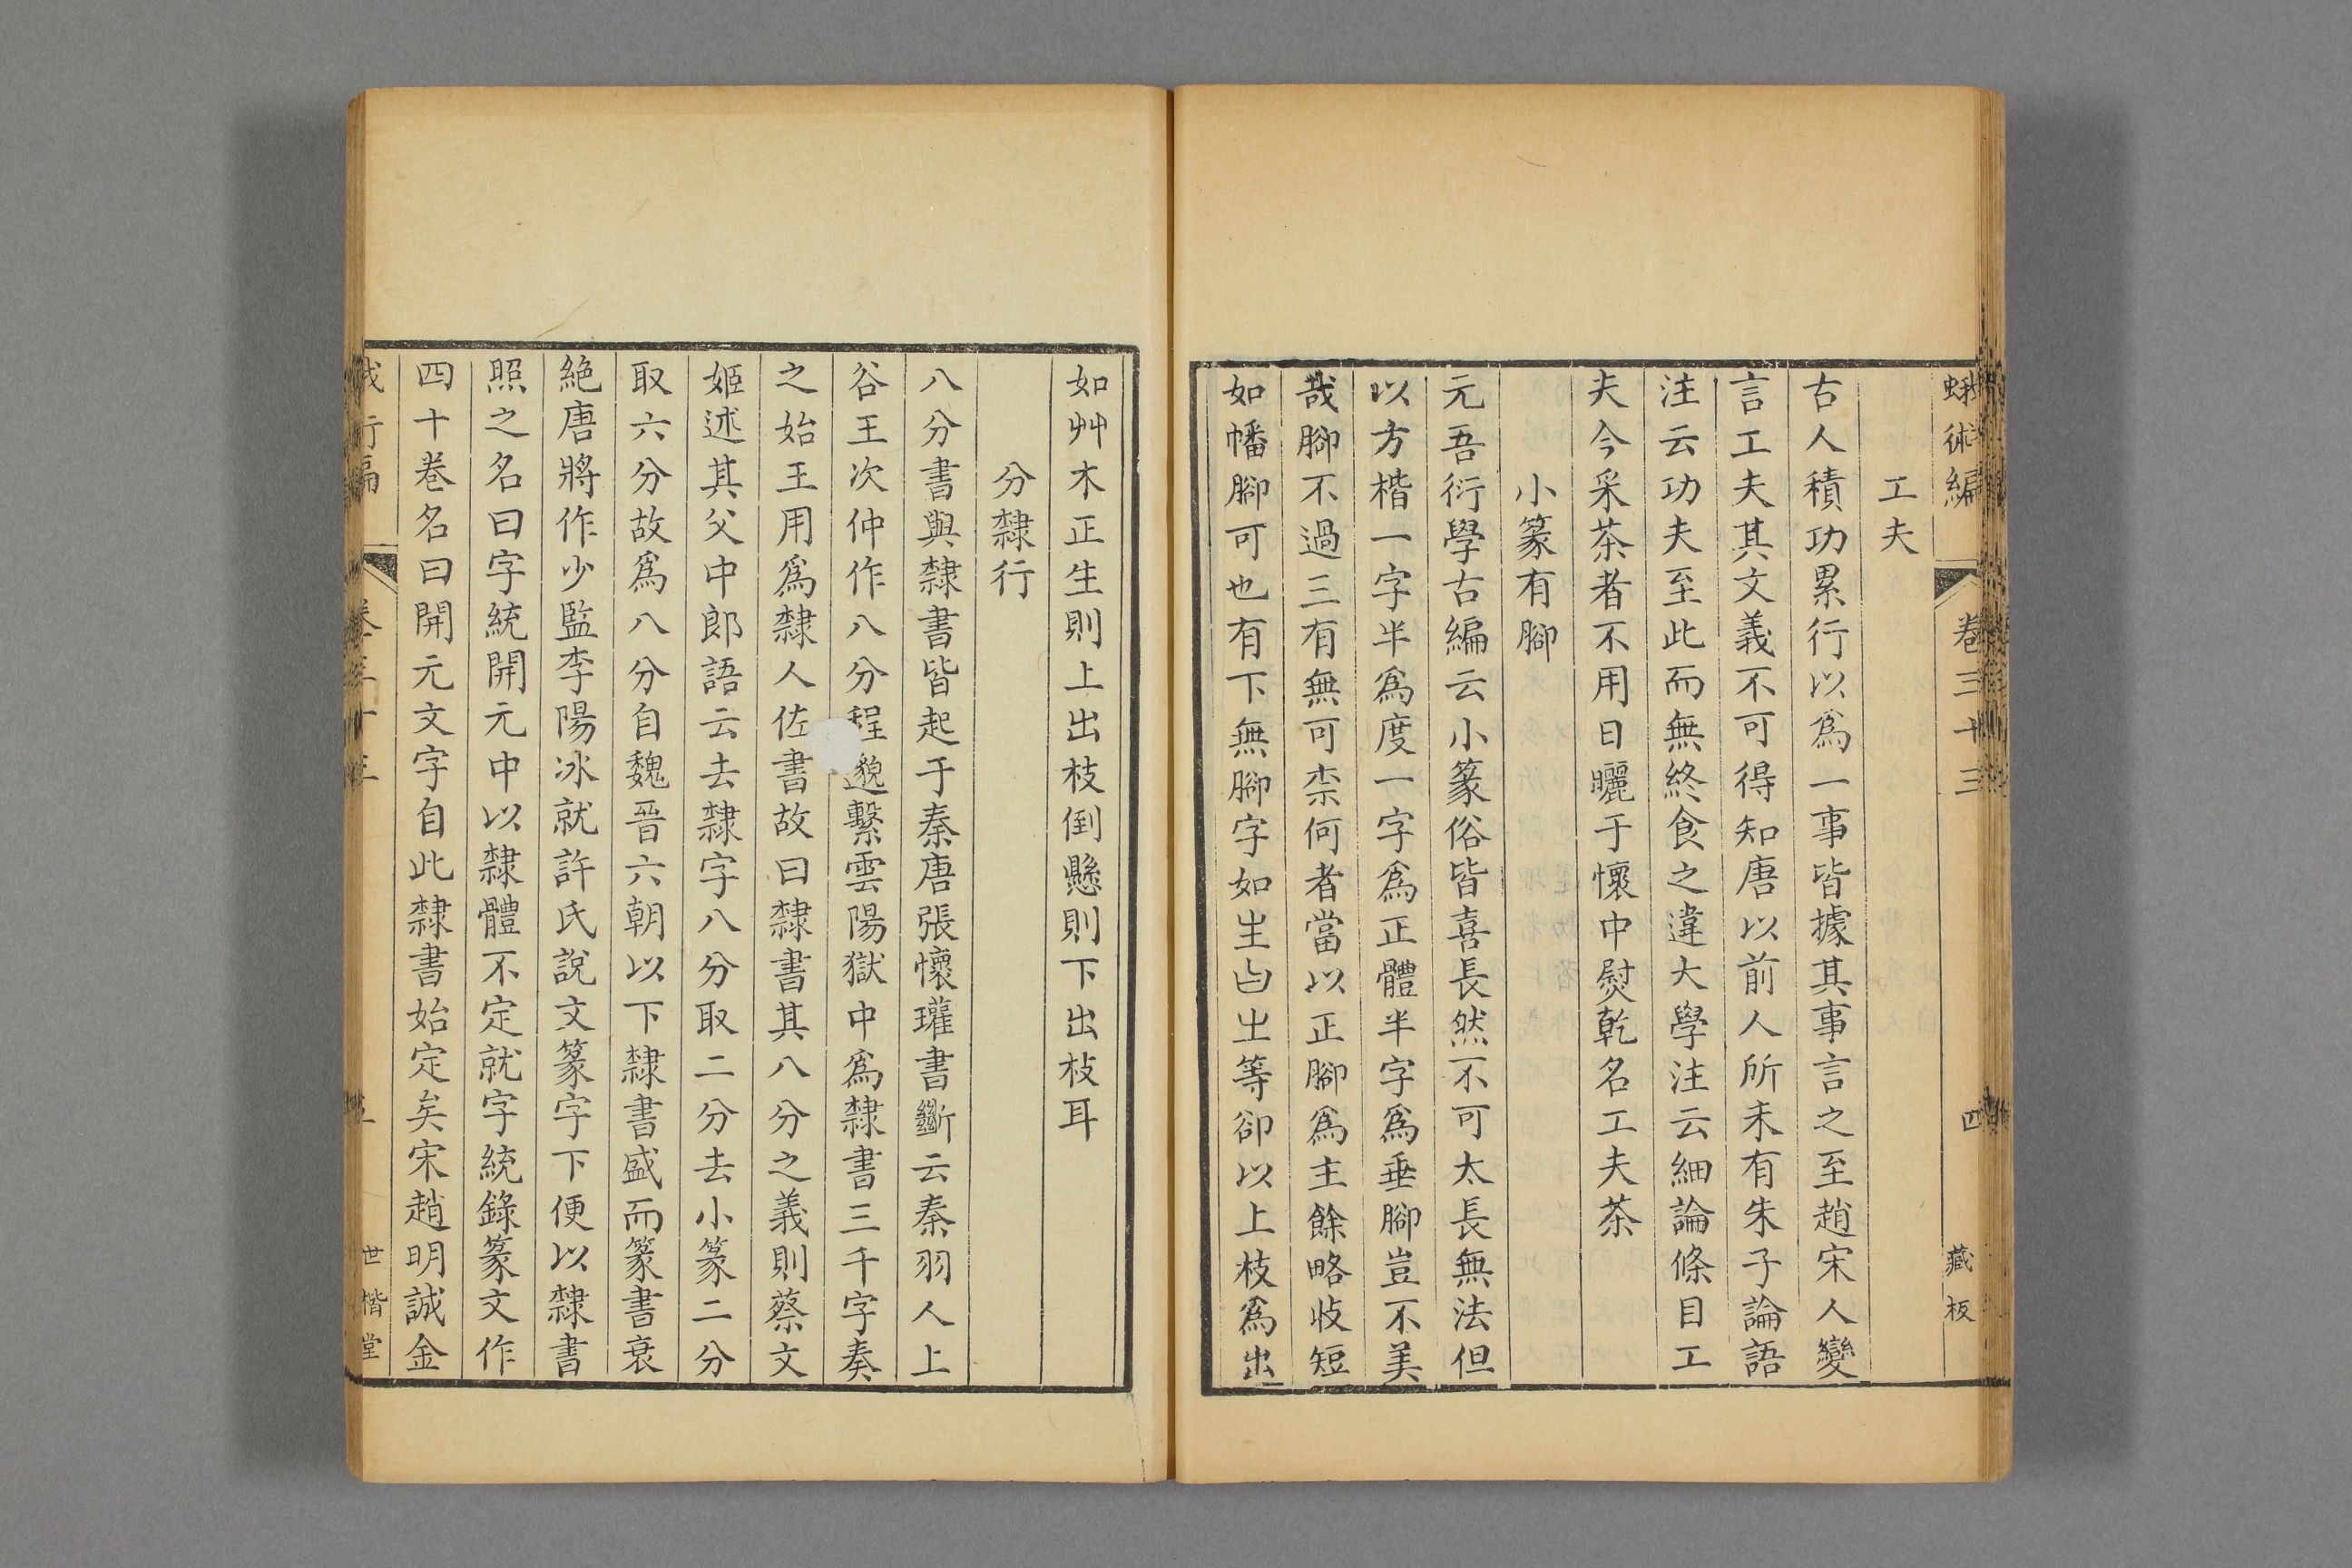 蛾術編 卷三十三 四 藏板
工夫
古人積功累行以爲一事皆據其事言之至趙宋人變
言工夫其文義不可得知唐以前人所未有朱子論語
注云功夫至此而無終食之違大學注云細論條目工
夫今采茶者不用日曬于懷中熨乾名工夫茶
小篆有腳
元吾衍學古編云小篆俗皆喜長然不可太長無法但
以方楷一字半爲度一字爲正體半字爲垂腳豈不美
哉腳不過三有無可柰何者當以正腳爲主餘略收短
如幡腳可也有下無腳字如生白㞢等卻以上枝爲出
如艸木正生則上出枝倒懸則下出枝耳
分隸行
八分書與隸書皆起于秦唐張懷瓘書斷云秦羽人上
谷王次仲作八分程邈繫雲陽獄中爲隸書三千字奏
之始王用爲隸人佐書故曰隸書其八分之義則蔡文
姬述其父中郎語云去隸字八分取二分去小篆二分
取六分故爲八分自魏晉六朝以下隸書盛而篆書衰
絶唐將作少監李陽冰就許氏說文篆字下便以隸書
照之名曰字統開元中以隸體不定就字統錄篆文作
四十卷名曰開元文字自此隸書始定矣宋趙明誠金
世楷堂